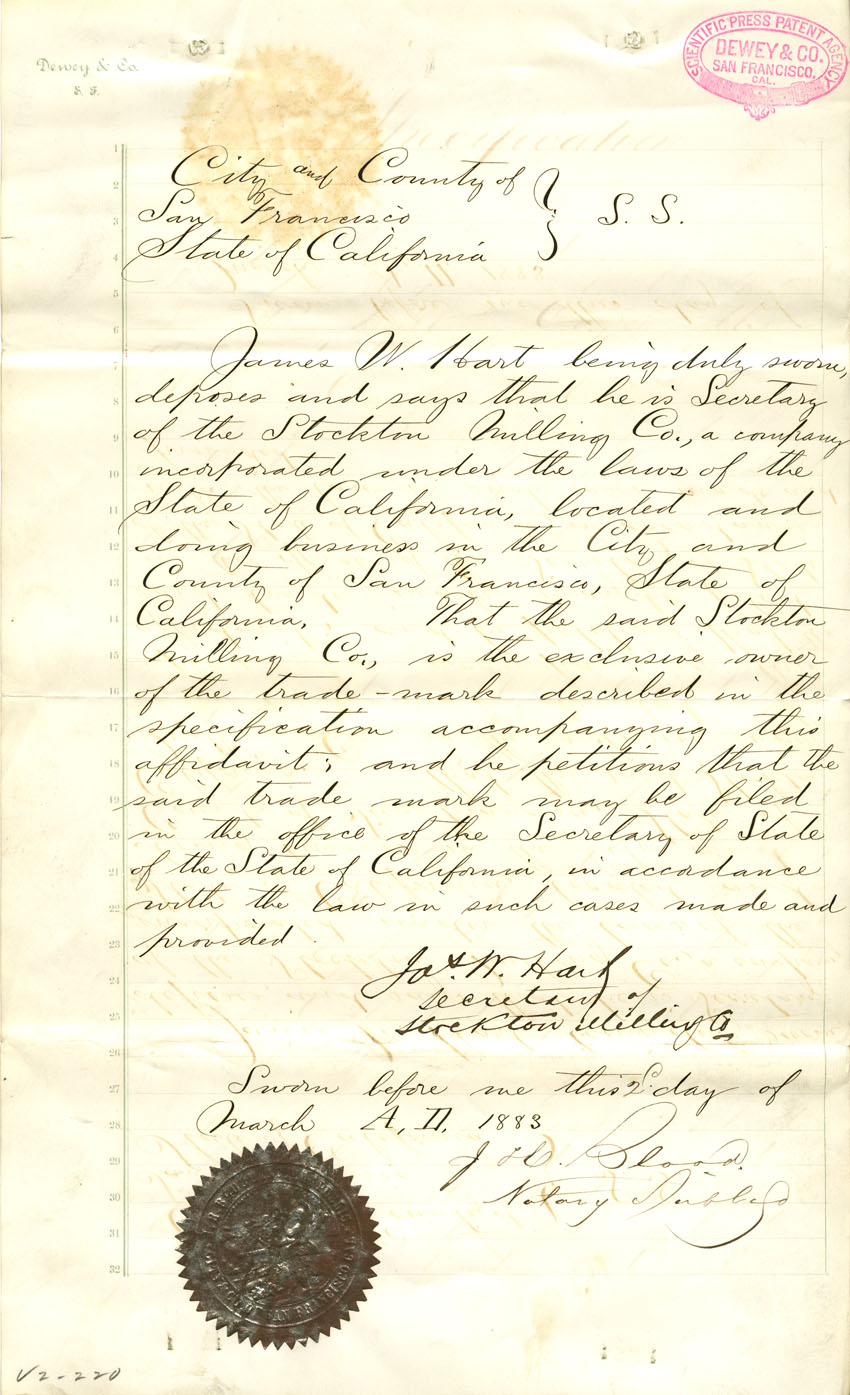 Dewey & Co.
S. F.
SCIENTIFIC PRESS PATENT AGENCY
DEWEY & CO.
SAN FRANCISCO,
CAL.
City and County of
San Francisco
State of California
} S. S.
James W. Hart being duly sworn,
deposes and says that he is Secretary
of the Stockton Milling Co., a company
incorporated under the laws of the
State of California, located and
doing business in the City and
County of San Francisco, State of
California. That the said Stockton
Milling Co., is the exclusive owner
of the trade-mark described in the
specification accompanying this
affidavit; and he petitions that the
said trade mark may be filed
in the office of the Secretary of State
of the State of California, in accordance
with the law in such cases made and
provided.
Jas. W. Hart
Secretary of
Stockton Milling Co
Sworn before me this 2d. day of
March A.D. 1883
Blood.
Notary Public
SAN FRANCISCO
V2-220
1
2
3
4
5
6
7
8
9
10
11
12
13
14
15
16
17
18
19
20
21
22
23
24
25
26
27
28
29
30
31
32